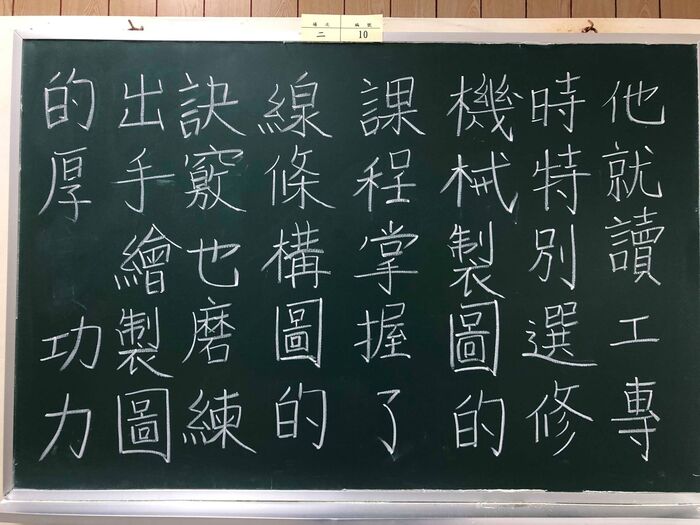 場次 編號
二 10
他就讀工專
時特別選修
機械製圖的
課程掌握了
線條構圖的
訣竅也磨練
出手繪製圖
的厚功力